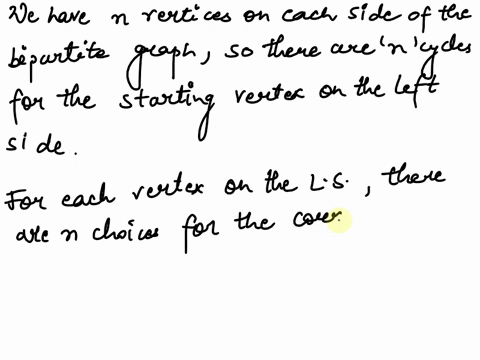 We have n vertices on each side of the
bipartite graph, so there are 'n' cycles
for the starting vertex on the left
side.
For each vertex on the L.S., there
are n choices for the